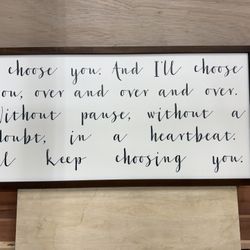 choose you. And I'll choose
ou, over and over and over.
Without pause, without a
doubt, in a heartbeat.
ll keep choosing you.